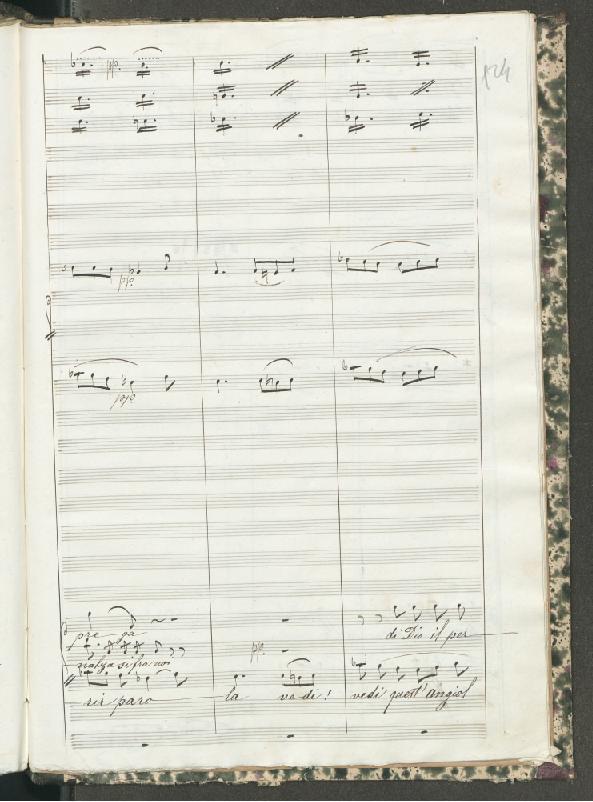 124
pp.
pp.
pp.
pre ga
di Dio il per
pp.
rialza si fra noi
sei paro la ve de! vedi quest' angiol